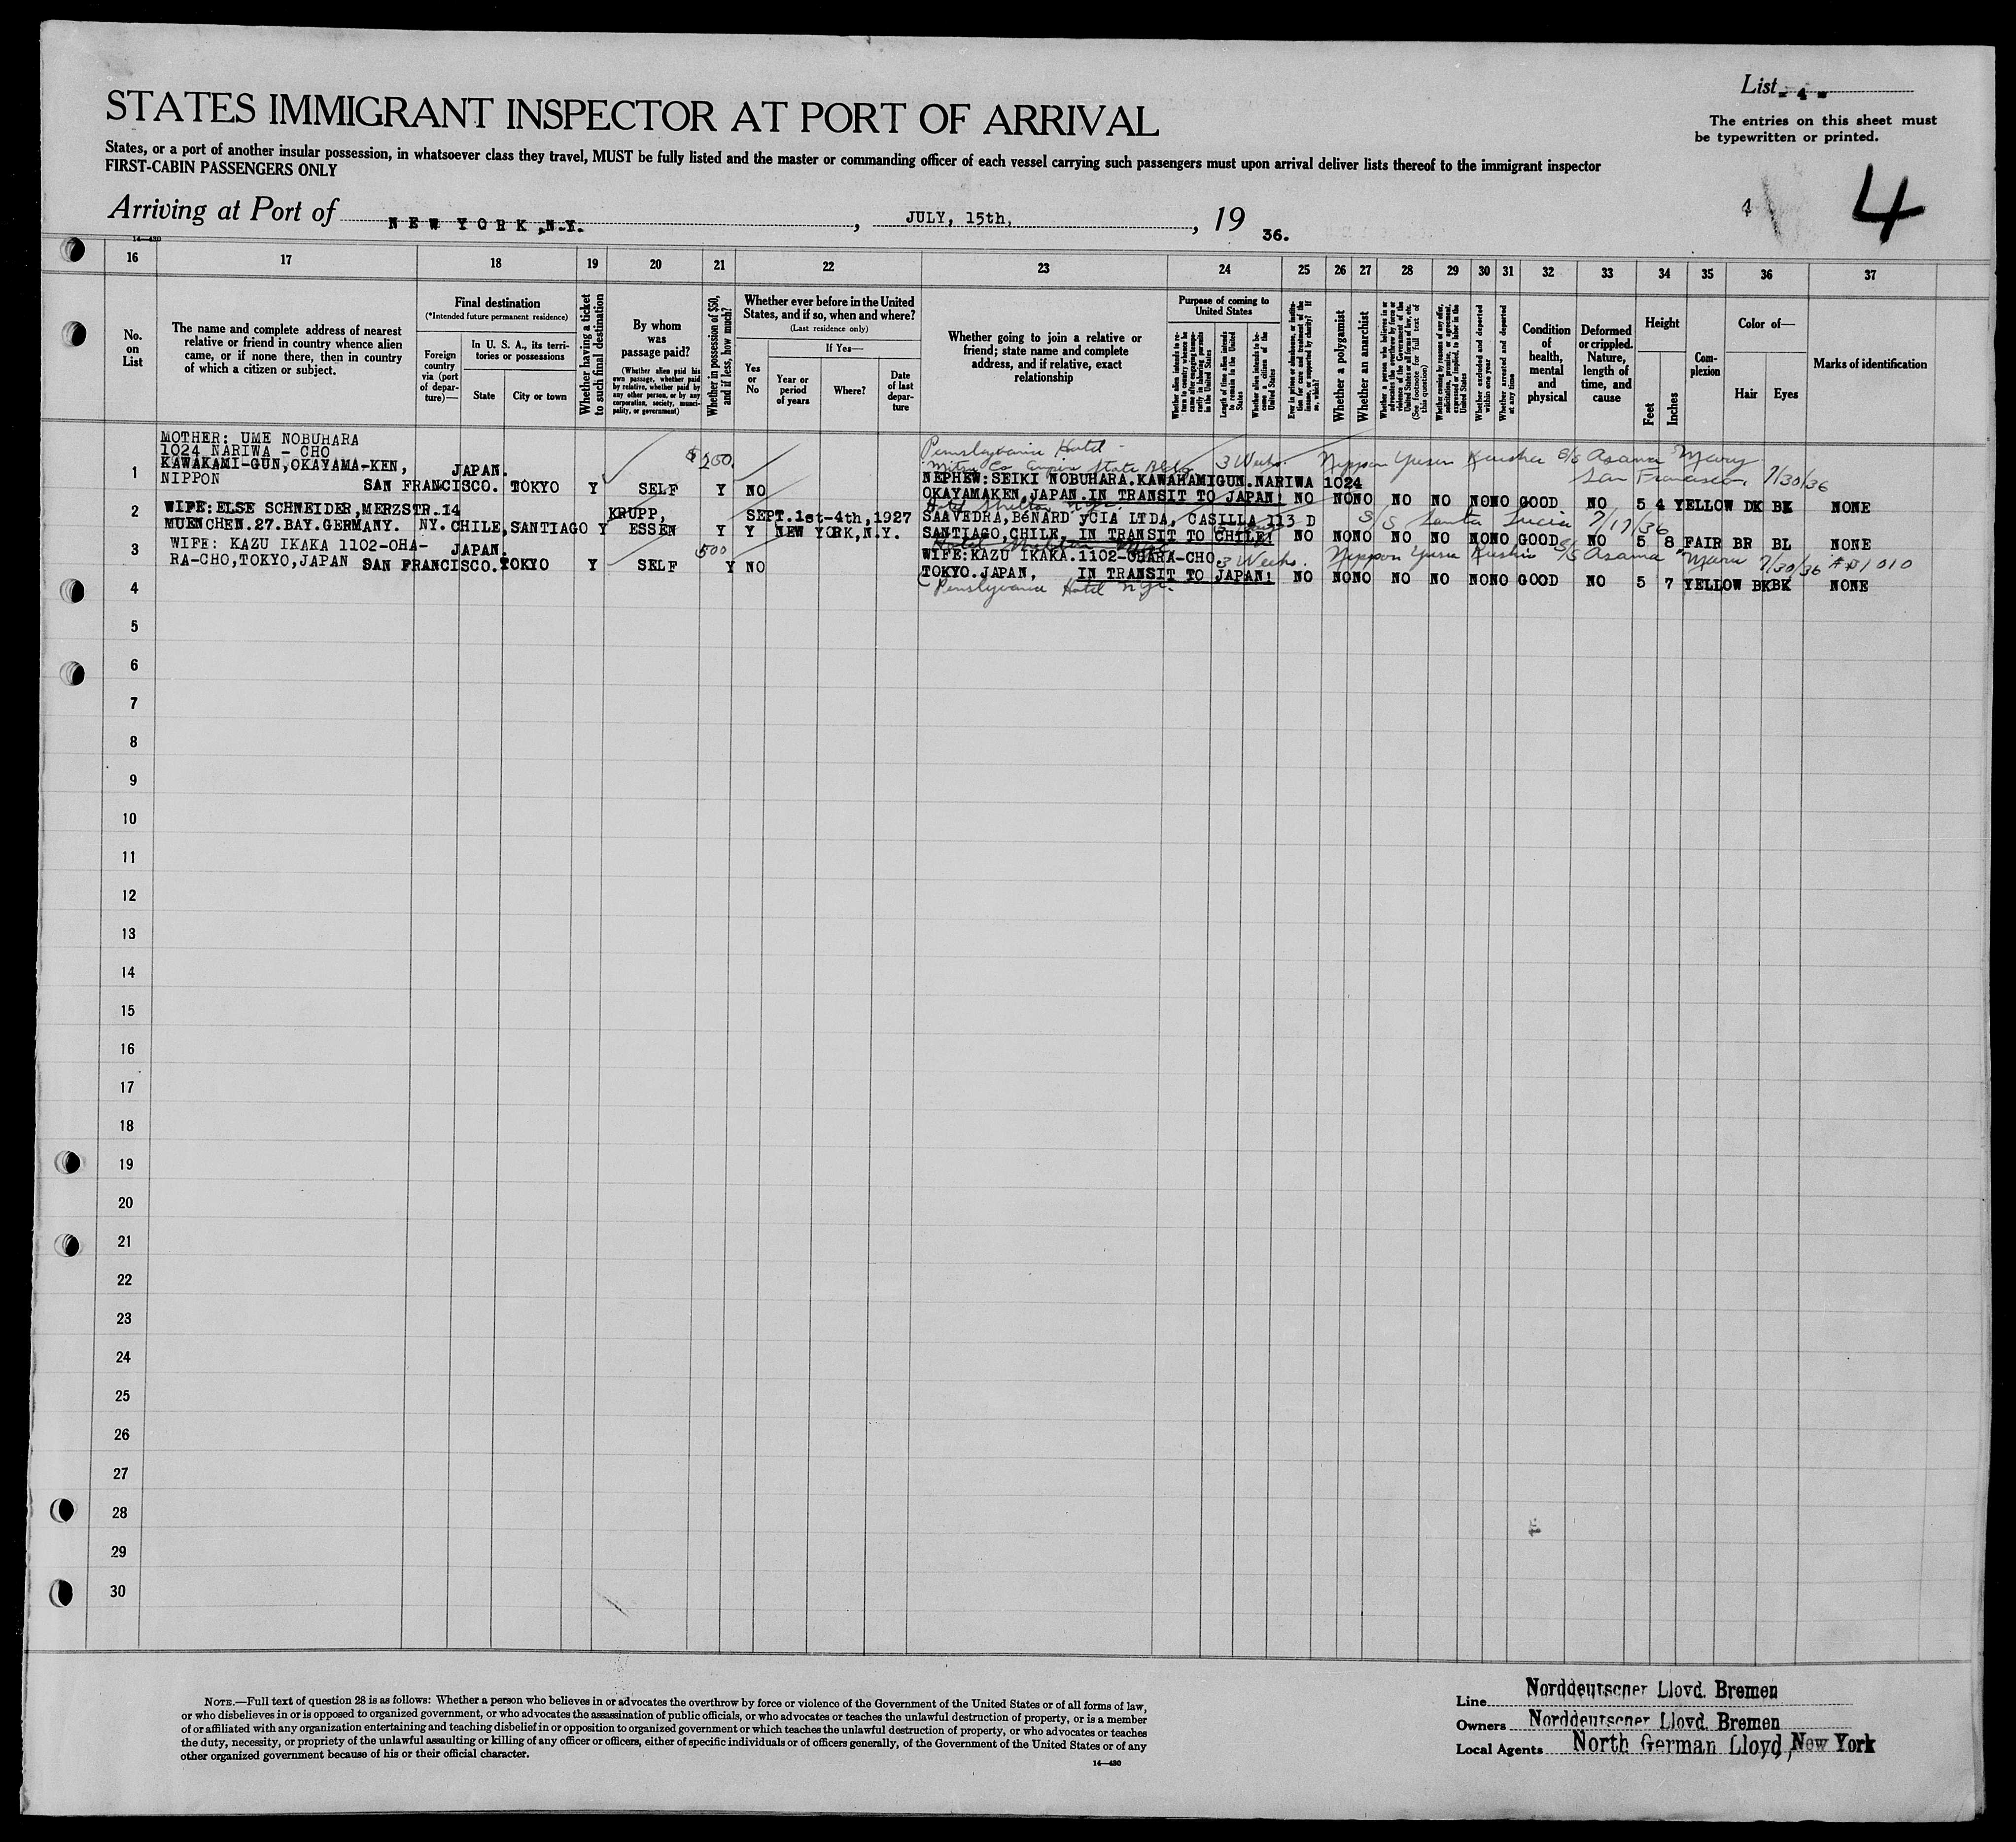 List - 4 -
STATES IMMIGRANT INSPECTOR AT PORT OF ARRIVAL
The entries on this sheet must
be typewritten or printed.
States, or a port of another insular possession, in whatsoever class they travel, MUST be fully listed and the master or commanding officer of each vessel carrying such passengers must upon arrival deliver lists thereof to the immigrant inspector
FIRST-CABIN PASSENGERS ONLY
4
4
Arriving at Port of NEW YORK, N.Y., JULY, 15th, 19 36.
14—430
16 17 18 19 20 21 22 23 24 25 26 27 28 29 30 31 32 33 34 35 36 37
No. on List
The name and complete address of nearest
relative or friend in country whence alien
came, or if none there, then in country
of which a citizen or subject.
Final destination
(*Intended future permanent residence)
Foreign country via (port of departure)—
In U. S. A., its territories or possessions
State
City or town
Whether having a ticket to such final destination
By whom was passage paid?
(Whether alien paid his own passage, whether paid by relative, whether paid by any other person, or by any corporation, society, municipality, or government)
Whether in possession of $50, and if less, how much?
Whether ever before in the United States, and if so, when and where?
(Last residence only)
Yes or No
If Yes—
Year or period of years
Where?
Date of last departure
Whether going to join a relative or
friend; state name and complete
address, and if relative, exact
relationship
Purpose of coming to United States
Length of time alien intends to remain in the United States
Whether alien intends to become a citizen of the United States
Whether a polygamist
Whether an anarchist
Whether excluded and deported within one year
Whether arrested and deported at any time
Condition of health, mental and physical
Deformed or crippled. Nature, length of time, and cause
Height
Feet
Inches
Complexion
Color of—
Hair
Eyes
Marks of identification
MOTHER: UME NOBUHARA
1024 NARIWA - CHO
KAWAKAMI-GUN, OKAYAMA-KEN,
NIPPON
1 JAPAN. SAN FRANCISCO. TOKYO Y SELF $200. Y NO
Pennsylvania Hotel
Mitsui Co Empire State Bldg 3 Weeks. Nippon Yusen Kaisha S/S Asama Maru
San Francisco, 7/30/36
NEPHEW: SEIKI NOBUHARA. KAWAKAMIGUN. NARIWA 1024
OKAYAMAKEN, JAPAN. IN TRANSIT TO JAPAN! NO NO NO NO NO NO NO GOOD NO 5 4 YELLOW DK BK NONE
2 WIFE: ELSE SCHNEIDER, MERZSTR. 14
MUENCHEN. 27. BAY. GERMANY. NY. CHILE, SANTIAGO Y KRUPP, ESSEN Y Y SEPT. 1st-4th, 1927 NEW YORK, N.Y.
Hotel Shelton N.Y.C.
SAAVEDRA, BéNARD yCIA LTDA, CASILLA 113 D S/S Santa Lucia 7/17/36
SANTIAGO, CHILE. IN TRANSIT TO CHILE! NO NO NO NO NO NO NO GOOD NO 5 8 FAIR BR BL NONE
3 WIFE: KAZU IKAKA 1102-OHA-
RA-CHO, TOKYO, JAPAN JAPAN. SAN FRANCISCO. TOKYO Y SELF 500 Y NO
WIFE: KAZU IKAKA. 1102-OHARA-CHO. 3 Weeks. Nippon Yusen Kaisha S/S Asama Maru 7/30/36
TOKYO. JAPAN, IN TRANSIT TO JAPAN! NO NO NO NO NO NO NO GOOD NO 5 7 YELLOW BK BK NONE
Pennsylvania Hotel N.Y.C.
4
5
6
7
8
9
10
11
12
13
14
15
16
17
18
19
20
21
22
23
24
25
26
27
28
29
30
NOTE.—Full text of question 28 is as follows: Whether a person who believes in or advocates the overthrow by force or violence of the Government of the United States or of all forms of law,
or who disbelieves in or is opposed to organized government, or who advocates the assassination of public officials, or who advocates or teaches the unlawful destruction of property, or is a member
of or affiliated with any organization entertaining and teaching disbelief in or opposition to organized government or which teaches the unlawful destruction of property, or who advocates or teaches
the duty, necessity, or propriety of the unlawful assaulting or killing of any officer or officers, either of specific individuals or of officers generally, of the Government of the United States or of any
other organized government because of his or their official character.
14—430
Line Norddeutscher Lloyd. Bremen
Owners Norddeutscher Lloyd. Bremen
Local Agents North German Lloyd, New York